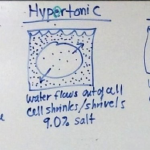 Hypertonic
water flows out of cell
cell shrinks/shrivels
9.0% salt